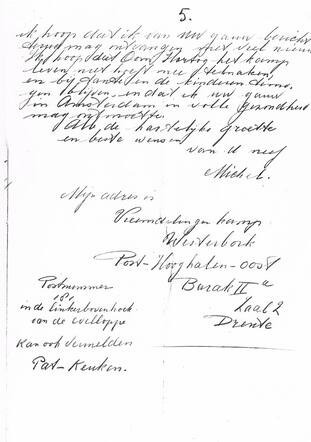 5.
ik hoop dat ik van uw gauw bericht
terug mag ontvangen met veel nieuws
Ik hoop dat Oom Hartog het kamp
leven niet hoeft mee te maken,
en bij Tante en de kinderen
gen blijven, en dat ik uw gauw
in Amsterdam in volle gezondheid
mag ontmoette.
Als de hartelijke groette
en beste wensen
van U neef
Michel.
Mijn adres is
Vreemdelingen kamp
Westerbork
Post-Hooghalen-oost
Barak II a
Zaal 2
Drente
Postnummer
181
in de linkerbovenhoek
van de evelloppe
kan ook vermelden
Pat-Keuken.